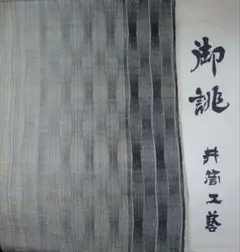 御誂
井筒工藝